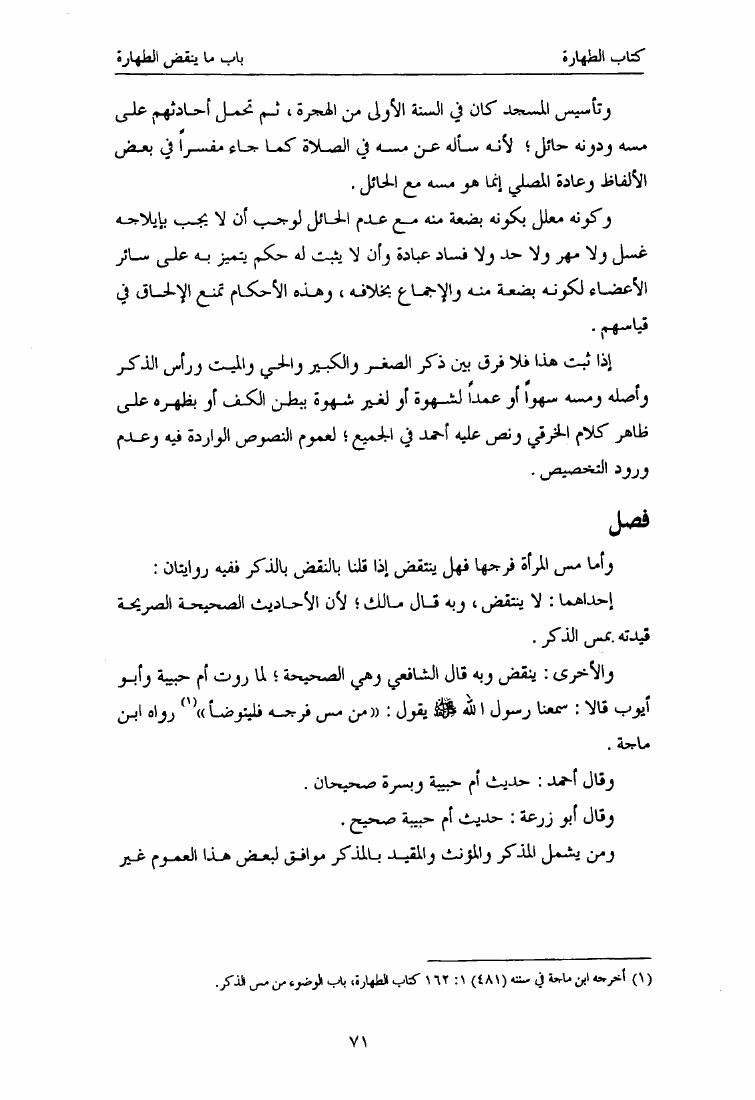 كتاب الطهارة باب ما ينقض الطهارة
وتأسيس المسجد كان في السنة الأولى من الهجرة ، ثم تحمل أحادثهم على
مسه ودونه حائل ؛ لأنه سأله عن مسه في الصلاة كما جاء مفسراً في بعض
الألفاظ وعادة المصلي إنما هو مسه مع الحائل .
وكونه معلل بكونه بضعة منه مع عدم الحائل لوجب أن لا يجب بإيلاجه
غسل ولا مهر ولا حد ولا فساد عبادة وأن لا يثبت له حكم يتميز به على سائر
الأعضاء لكونه بضعة منه والإجماع بخلافه ، وهذه الأحكام تمنع الإلحاق في
قياسهم .
إذا ثبت هذا فلا فرق بين ذكر الصغير والكبير والحي والميت ورأس الذكر
وأصله ومسه سهواً أو عمداً لشهوة أو لغير شهوة ببطن الكف أو بظهره على
ظاهر كلام الخرقي ونص عليه أحمد في الجميع ؛ لعموم النصوص الواردة فيه وعدم
ورود التخصيص .
فصل
وأما مس المرأة فرجها فهل ينتقض إذا قلنا بالنقض بالذكر ففيه روايتان :
إحداهما : لا ينتقض ، وبه قال مالك ؛ لأن الأحاديث الصحيحة الصريحة
قيدته بمس الذكر .
والأخرى : ينقض وبه قال الشافعي وهي الصحيحة ؛ لما روت أم حبيبة وأبو
أيوب قالا : سمعنا رسول الله ﷺ يقول : «من مس فرجه فليتوضأ»(١) رواه ابن
ماجة .
وقال أحمد : حديث أم حبيبة وبسرة صحيحان .
وقال أبو زرعة : حديث أم حبيبة صحيح .
ومن يشمل المذكر والمؤنث والمقيد بالمذكر موافق لبعض هذا العموم غير
(١) أخرجه ابن ماجة في سننه (٤٨١) ١: ١٦٢ كتاب الطهارة، باب الوضوء من مس الذكر.
٧١